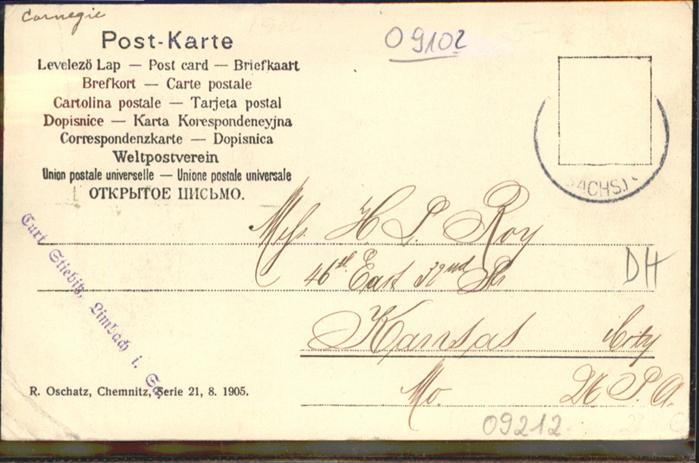 Carnegie
Post-Karte
09102
Levelező Lap — Post card — Briefkaart
Brefkort — Carte postale
Cartolina postale — Tarjeta postal
Dopisnice — Karta Korespondencyjna
Correspondenzkarte — Dopisnica
Weltpostverein
Union postale universelle — Unione postale universale
ОТКРЫТОЕ ПИСЬМО.
SACHS.)
H. S. Roy
46th East 32nd Str
DH
Kansas City
Mo. U.S.A.
Curt Stiebitz, Limbach i. Sa.
R. Oschatz, Chemnitz, Serie 21, 8. 1905.
09212